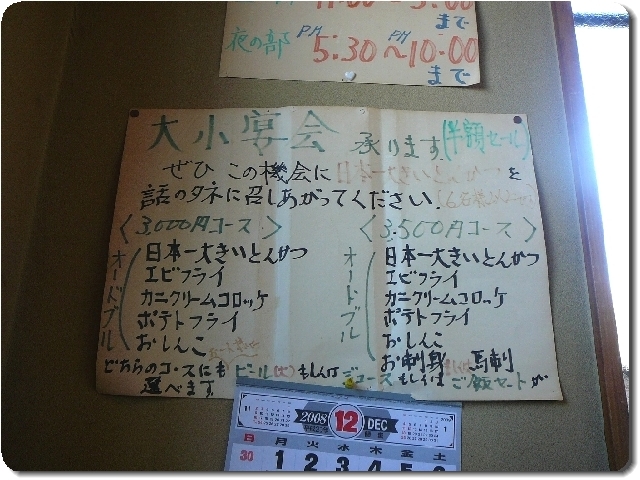 11:00~3:00
まで
夜の部 PM 5:30~PM 10:00
まで
大小宴会 承ります (半額セール)
ぜひ この機会に 日本一大きいとんかつ を
話のタネに召しあがってください!
〈3,000円コース〉
オードブル
日本一大きいとんかつ
エビフライ
カニクリームコロッケ
ポテトフライ
おしんこ
〈3,500円コース〉
オードブル
日本一大きいとんかつ
エビフライ
カニクリームコロッケ
ポテトフライ
おしんこ
お刺身 馬刺
どちらのコースにも ビール(大) もしくは ジュース もしくは ご飯セットが
選べます
11 2008 12 DEC 1
日 月 火 水 木 金 土
30 1 2 3 4 5 6